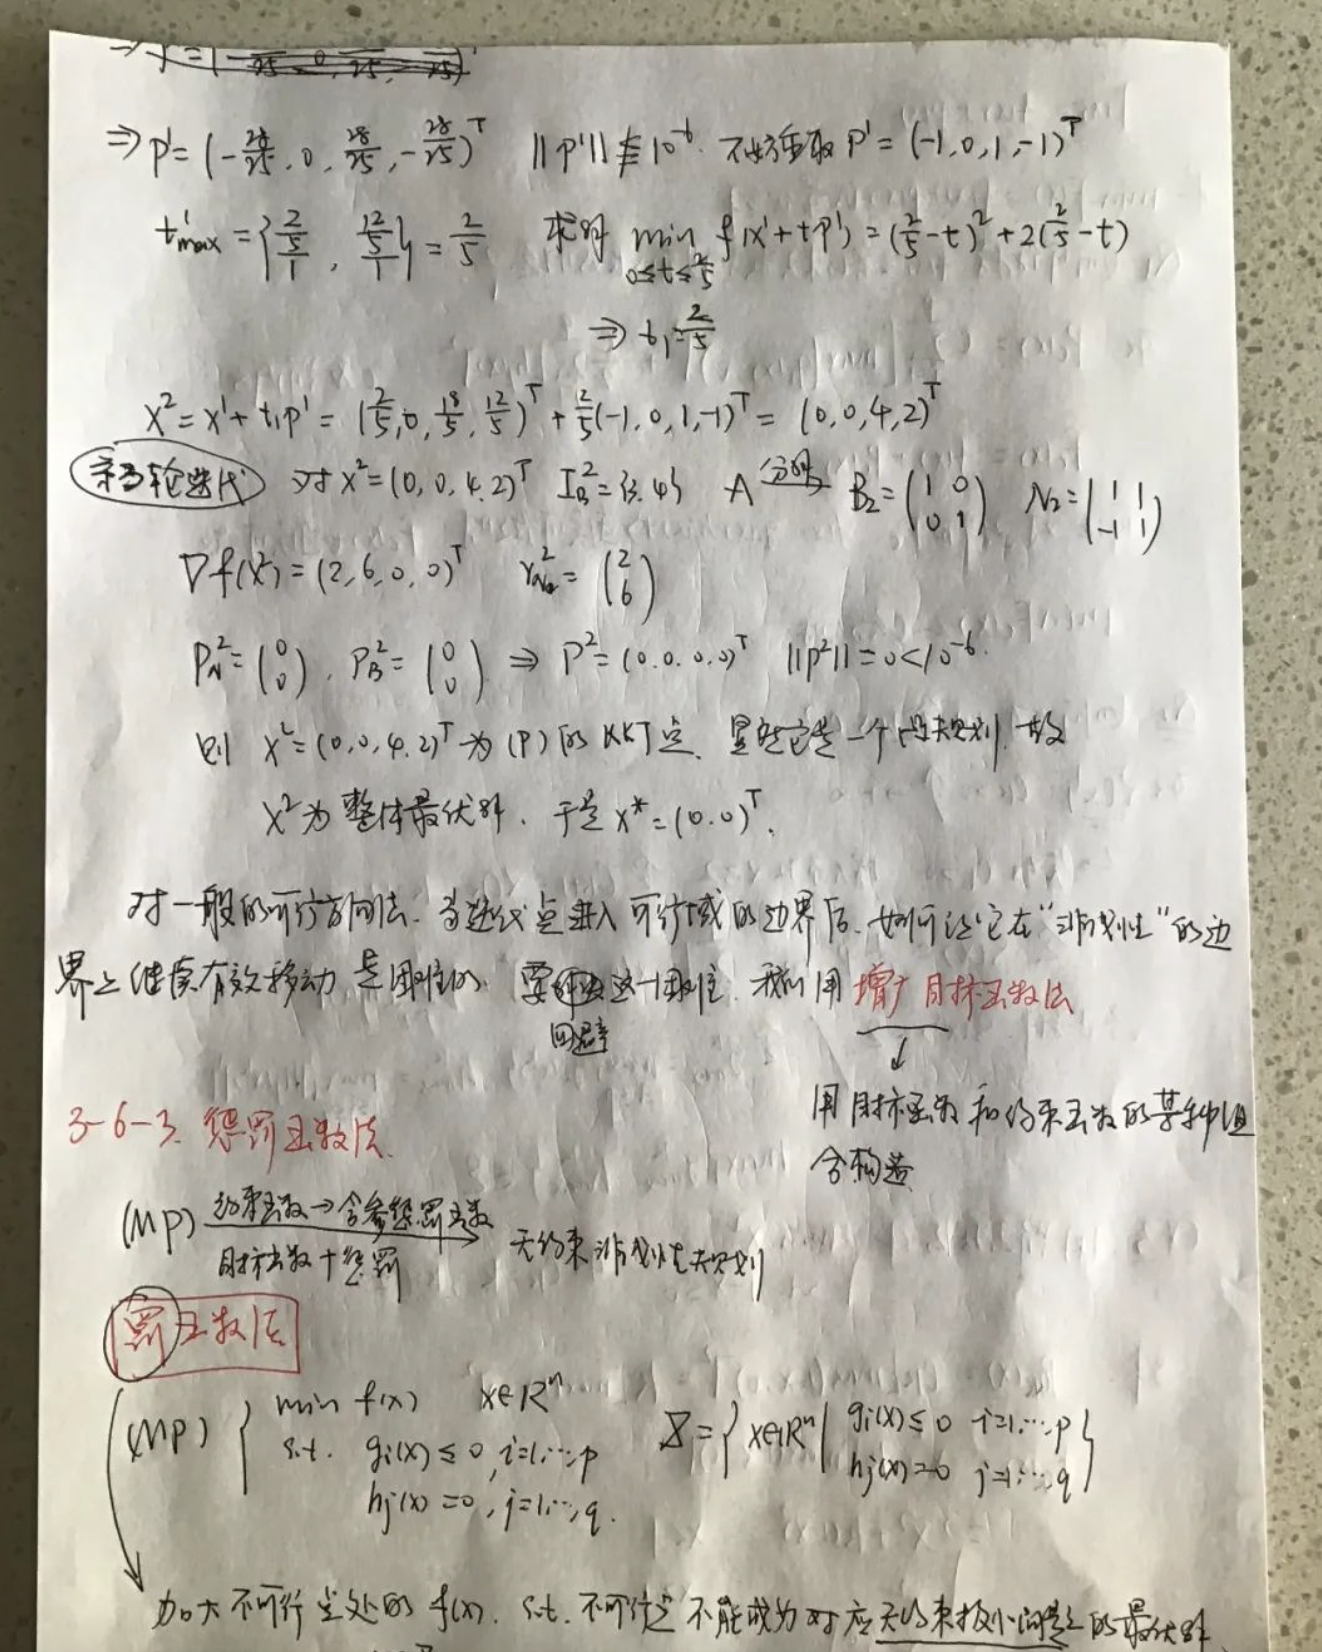 ⇒ p¹ = (-28/25, 0, 28/25, -28/25)ᵀ ‖p¹‖ ≰ 10⁻⁶. 不妨重取 p¹ = (-1, 0, 1, -1)ᵀ
t¹max = {2/5/1, 12/5/1} = 2/5 求解 min 0≤t≤2/5 f(x¹+tp¹) = (2/5-t)² + 2(2/5-t)
⇒ t₁ = 2/5
x² = x¹ + t₁p¹ = (2/5, 0, 18/5, 12/5)ᵀ + 2/5(-1, 0, 1, -1)ᵀ = (0, 0, 4, 2)ᵀ
第3轮迭代 对 x² = (0, 0, 4, 2)ᵀ I_B² = {3, 4} A 分解→ B₂ = (1 0; 0 1) N₂ = (1 1; -1 1)
∇f(x²) = (2, 6, 0, 0)ᵀ r²_N₂ = (2; 6)
P_N² = (0; 0), P_B² = (0; 0) ⇒ P² = (0, 0, 0, 0)ᵀ ‖p²‖ = 0 < 10⁻⁶.
则 x² = (0, 0, 4, 2)ᵀ 为 (P) 的 KKT 点. 显然它是一个凸规划. 故
x² 为整体最优解. 于是 x* = (0, 0)ᵀ.
对一般的可行方向法. 当迭代点进入可行域的边界后. 如何让它在“非线性”的边
界上继续有效移动是困难的. 要 这一困难. 我们用 增广目标函数法
回避
↓
用目标函数和约束函数的某种组
合构造
3-6-3. 惩罚函数法.
(MP) 约束函数→含参惩罚函数
目标函数+惩罚 无约束非线性规划
罚函数法
(MP) { min f(x) x∈Rⁿ
s.t. gi(x) ≤ 0, i=1,…,p
hj(x) = 0, j=1,…,q.
X = { x∈Rⁿ | gi(x) ≤ 0 i=1,…,p
hj(x) = 0 j=1,…,q }
加大不可行点处的 f(x). s.t. 不可行点不能成为对应无约束极小问题的最优解.